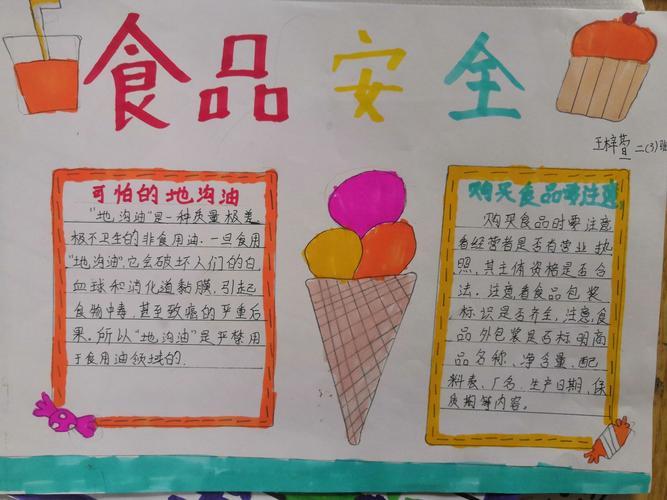 食品安全
王梓萱 二(3)班
可怕的地沟油
"地沟油"是一种质量极差
极不卫生的非食用油.一旦食用
"地沟油",它会破坏人们的白
血球和消化道黏膜,引起
食物中毒,甚至致癌的严重后
果。所以"地沟油"是严禁用
于食用油领域的.
购买食品要注意
购买食品时要注意
看经营者是否有营业执
照,其主体资格是否合
法。注意看食品包装
标识是否齐全,注意食
品外包装是否标明商
品名称、净含量、配
料表、厂名、生产日期、保
质期等内容。